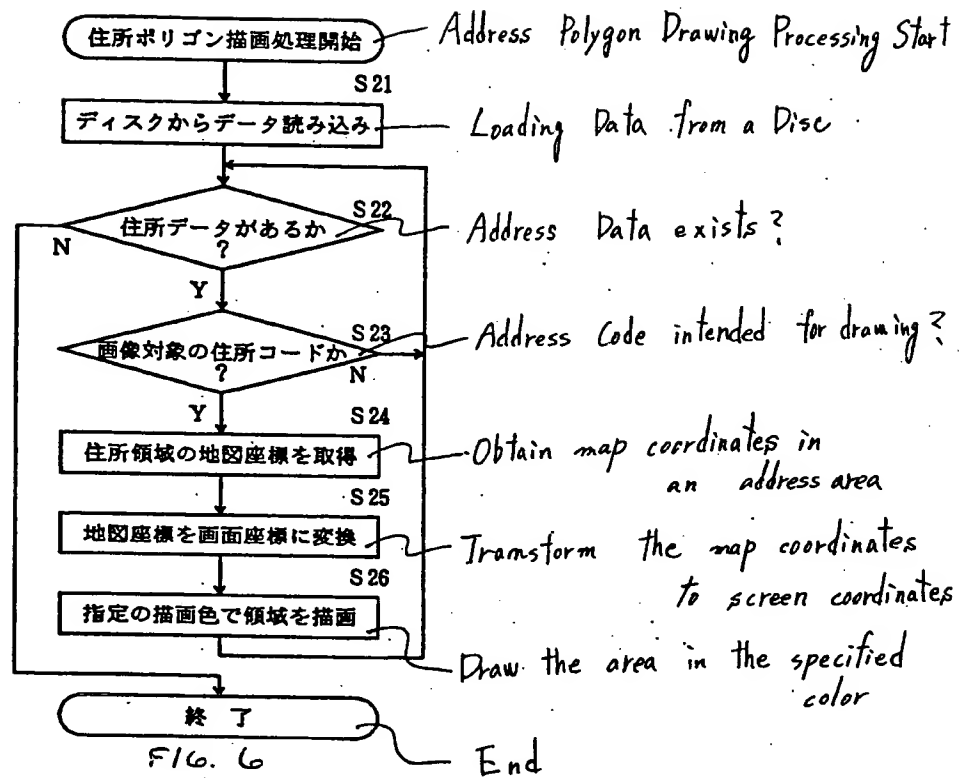 住所ポリゴン描画処理開始
Address Polygon Drawing Processing Start
S21
ディスクからデータ読み込み
Loading Data from a Disc
S22
住所データがあるか
?
N
Y
Address Data exists?
S23
画像対象の住所コードか
?
N
Y
Address Code intended for drawing?
S24
住所領域の地図座標を取得
Obtain map coordinates in
an address area
S25
地図座標を画面座標に変換
Transform the map coordinates
to screen coordinates
S26
指定の描画色で領域を描画
Draw the area in the specified
color
終了
End
FIG. 6